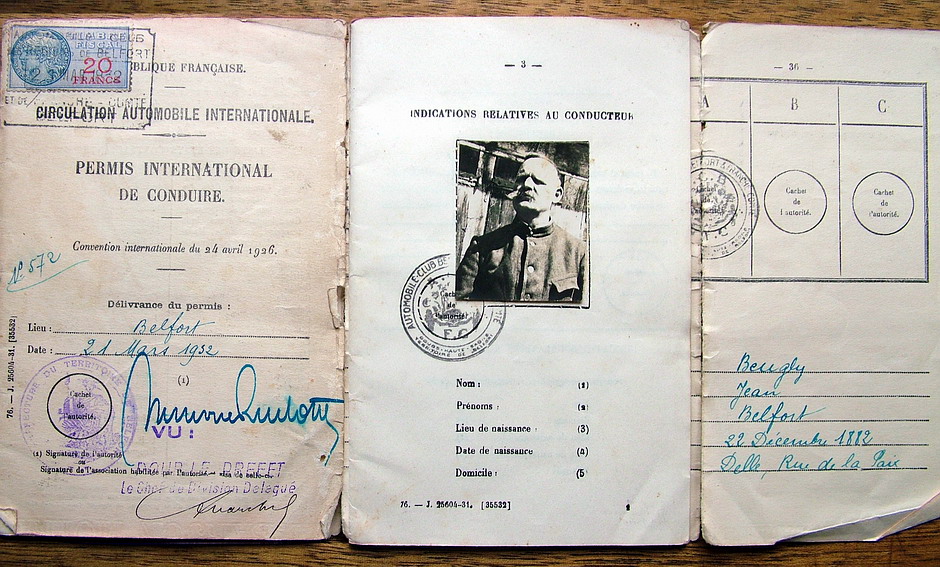 20
FRANCS
RÉPUBLIQUE FRANÇAISE.
CIRCULATION AUTOMOBILE INTERNATIONALE.
PERMIS INTERNATIONAL
DE CONDUIRE.
Convention internationale du 24 avril 1926.
N° 572
Délivrance du permis :
Lieu : Belfort
Date : 21 Mars 1932
(1)
Cachet
de
l'autorité.
VU :
(1) Signature de l'autorité
ou
Signature de l'association habilitée par l'autorité
POUR LE PREFET
Le Chef de Division Délégué
76. — J. 25604-31. [35532]
— 3 —
INDICATIONS RELATIVES AU CONDUCTEUR
AUTOMOBILE-CLUB
Cachet
de
l'autorité.
Nom : (1)
Prénoms : (2)
Lieu de naissance : (3)
Date de naissance (4)
Domicile : (5
76. — J. 25604-31. [35532]
— 36 —
A B C
Cachet
de
l'autorité.
Cachet
de
l'autorité.
Cachet
de
l'autorité.
Beugly
Jean
Belfort
22 Décembre 1882
Delle, Rue de la Paix